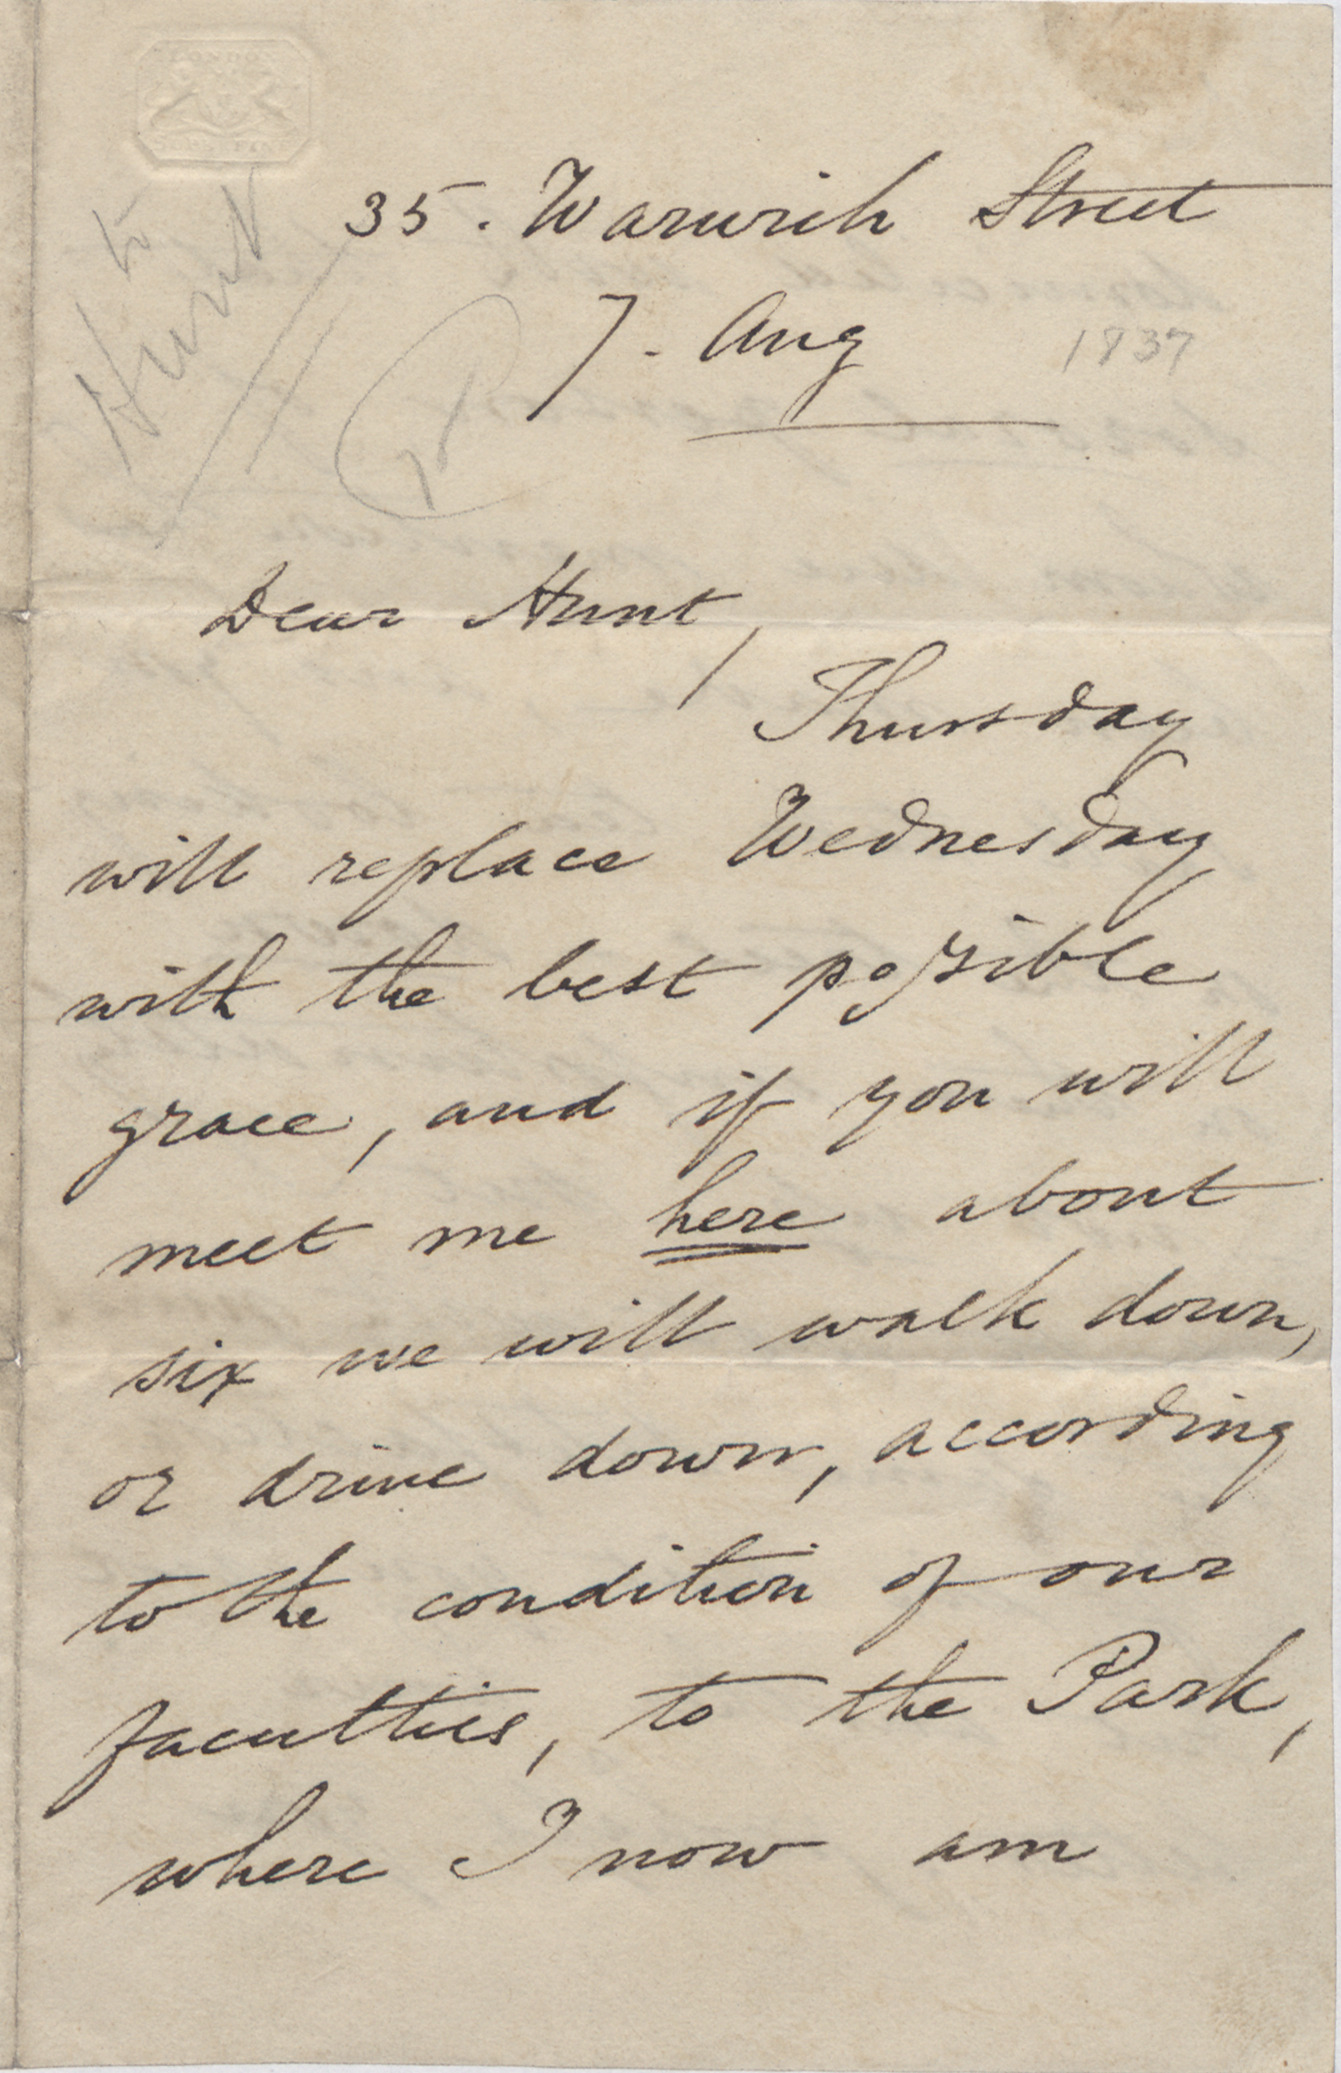 LONDON
to
Hunt
35. Warwick Street
7. Aug 1837
Dear Hunt,
Thursday
will replace Wednesday
with the best possible
grace, and if you will
meet me here about
six we will walk down,
or drive down, according
to the condition of our
faculties, to the Park,
where I now am